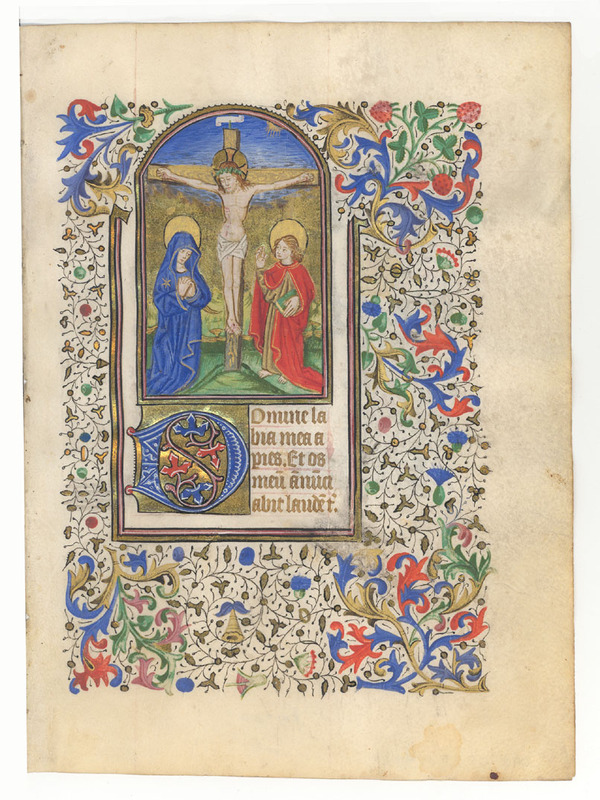 Domine la
bia mea a
pies. Et os
meū ānūci
abit laudē t̄.